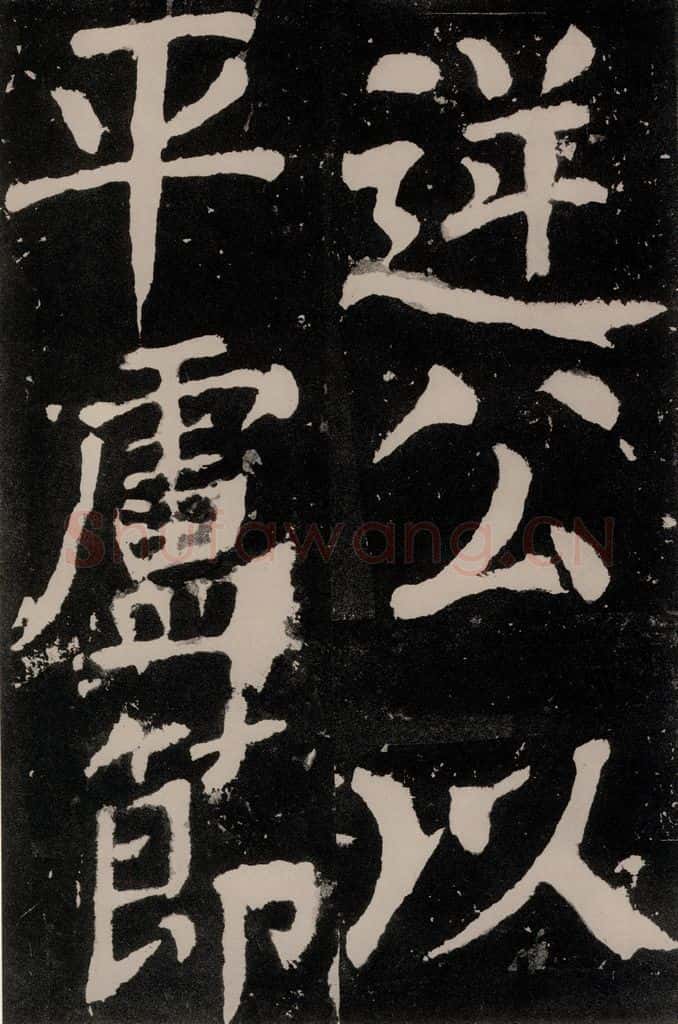 逆公以
平盧節
Shufawang.CN